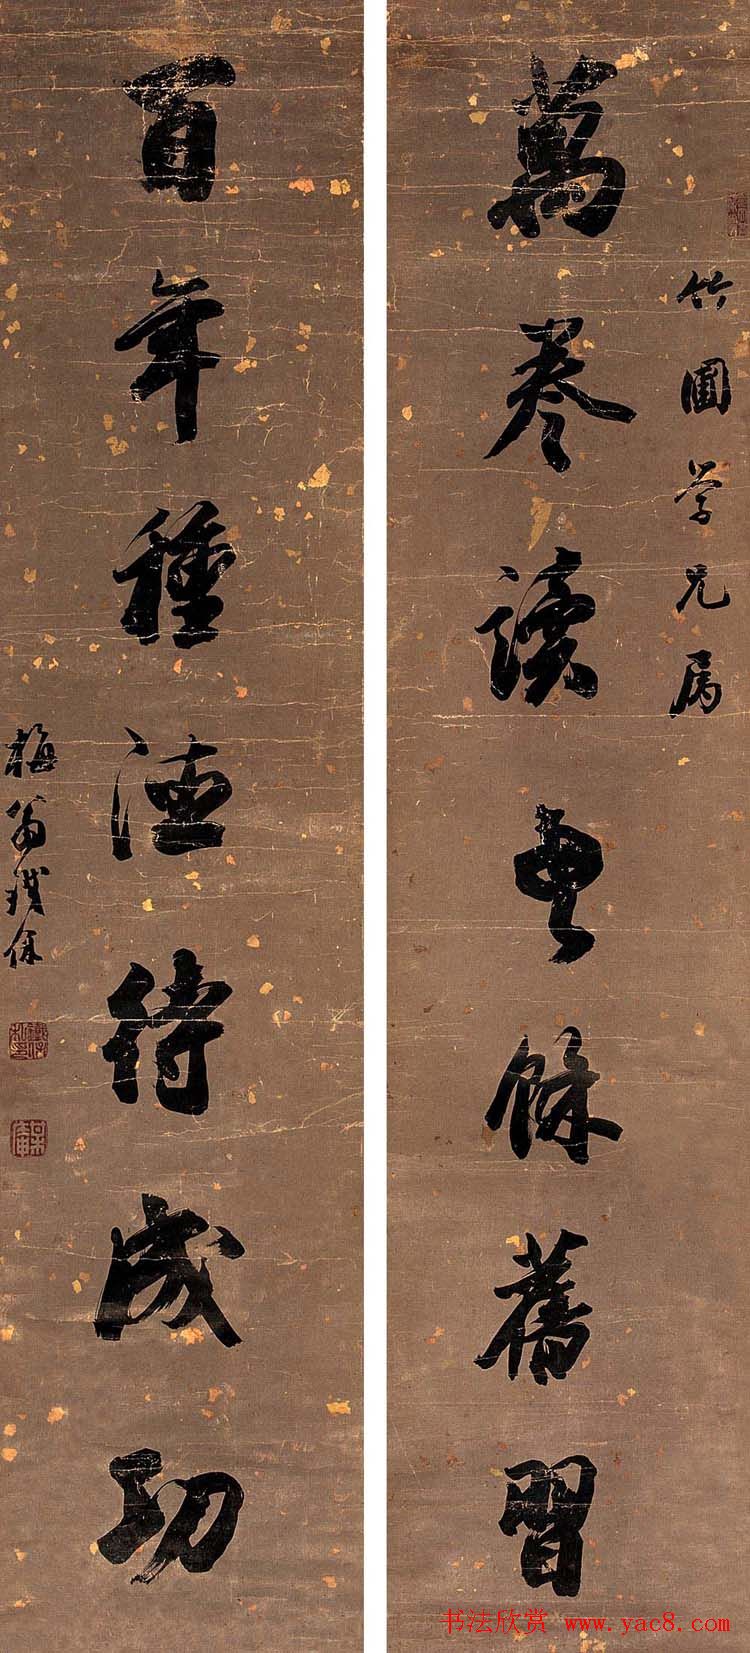 竹圃学兄属
萬卷讀書餘舊習
百年種德待成功
梅翁銕保
书法欣赏 www.yac8.com